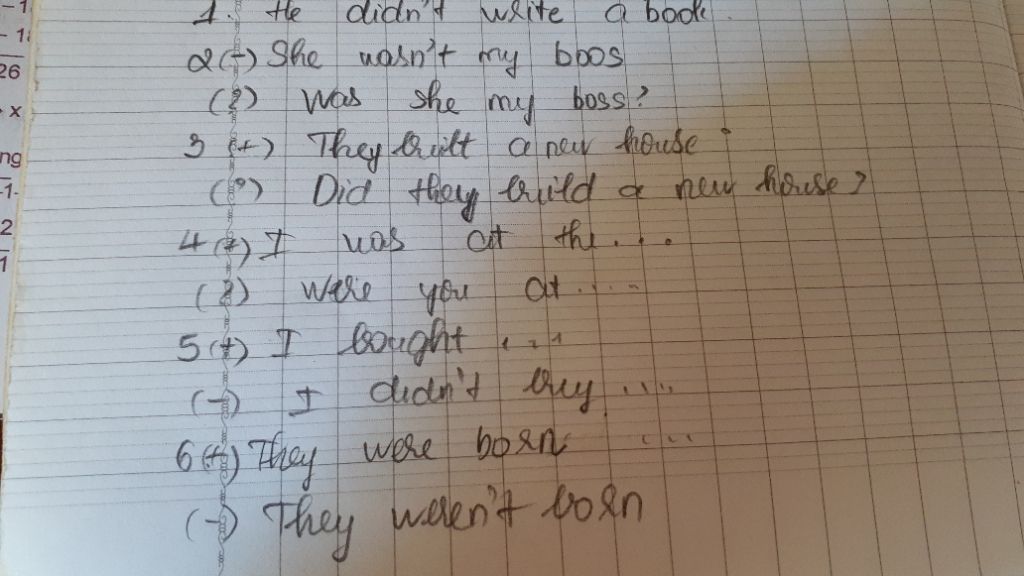 1. He didn't write a book.
2 (-) She wasn't my boos
(?) Was she my boss?
3 (+) They built a new house.
(?) Did they build a new house?
4 (+) I was at the....
(?) Were you at.....
5 (+) I bought ....
(-) I didn't buy .....
6 (+) They were born ....
(-) They weren't born
-1
- 1
26
x
ng
-1-
2
1